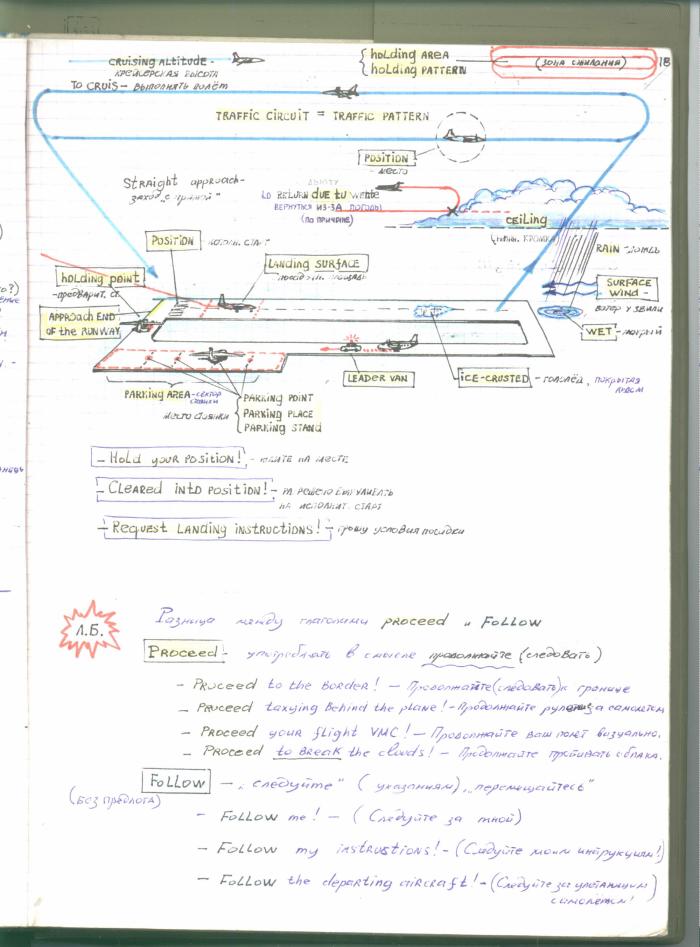 CRUISING ALTITUDE -
КРЕЙСЕРСКАЯ ВЫСОТА
TO CRUIS - ВЫПОЛНЯТЬ ПОЛЁТ
holding AREA
holding PATTERN
(ЗОНА ОЖИДАНИЯ)
18
TRAFFIC CIRCUIT = TRAFFIC PATTERN
POSITION
- МЕСТО
Straight approach-
заход с прямой"
to RETURN due to
ВЕРНУТЬСЯ ИЗ-ЗА ПОГОДЫ
(ПО ПРИЧИНЕ)
CEiling
RAIN
POSITION
Landing SURFACE
holding POINT
APPROACH END
OF the RUNWAY
SURFACE
WIND -
ВЕТЕР У ЗЕМЛИ
WET - МОКРЫЙ
LEADER VAN
iCE-CRUSTED - ГОЛОЛЁД, ПОКРЫТАЯ
ЛЬДОМ
PARKING AREA - СЕКТОР
СТОЯНКИ
МЕСТО СТОЯНКИ
PARKING POINT
PARKING PLACE
PARKING STAND
- Hold your POSITION! - ЖДИТЕ НА МЕСТЕ
- CLEARED INTO POSITION! -
НА ИСПОЛНИТ. СТАРТ
- REQUEST LANDING INSTRUCTIONS! - прошу условия посадки
Л.Б.
Разница между глаголами PROCEED и FOLLOW
PROCEED - употреблять в смысле продолжайте (следовать)
- PROCEED to the BORDER! - Продолжайте (следовать) к границе
- PROCEED taxying Behind the plane! - Продолжайте руление за самолетом
- PROCEED your flight VMC! - Продолжайте ваш полет визуально.
- PROCEED to BREAK the clouds! - Продолжайте пробивать облака.
FOLLOW - „следуйте" (указаниям), „перемещайтесь"
(БЕЗ ПРЕДЛОГА)
- FOLLOW me! - (Следуйте за мной)
- FOLLOW my instructions! - (Следуйте моим инструкциям!)
- FOLLOW the departing aircraft! - (Следуйте за улетающим
самолетом!